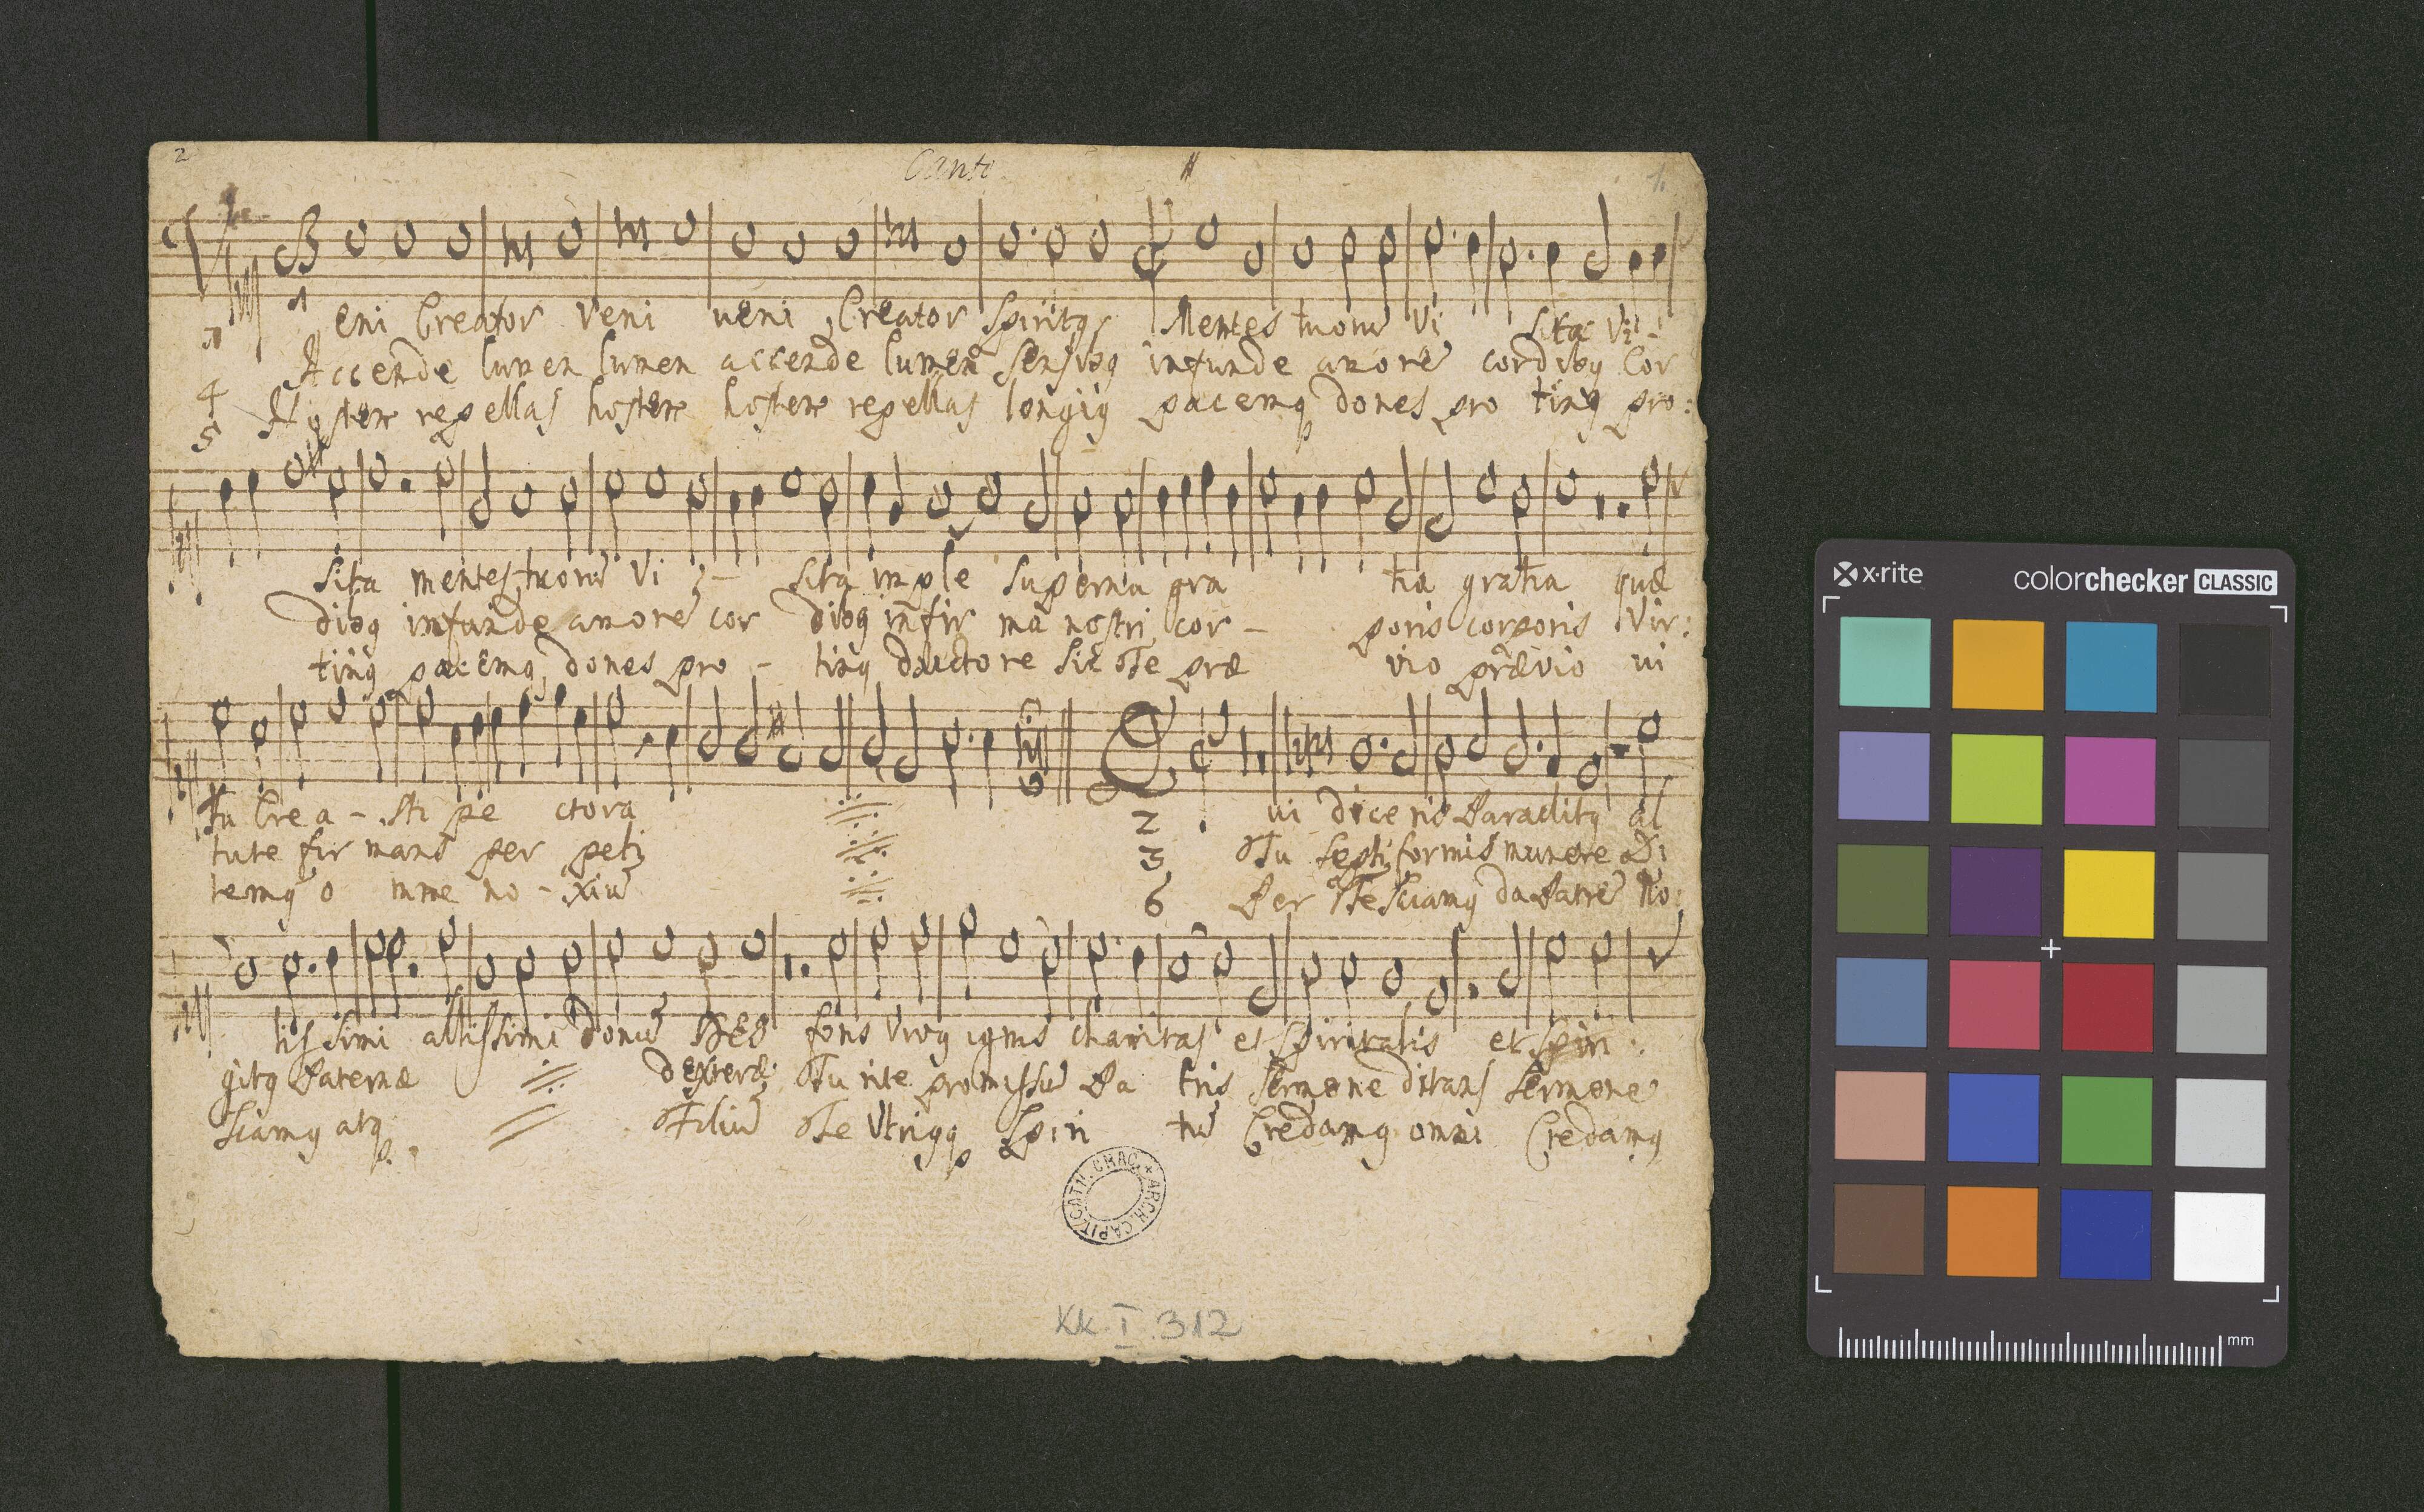 2 Canto 1.
1 eni Creator Veni ueni Creator Spiritꝰ Mentes tuorū Vi sita Vi -
4 Accende lumen lumen accende lumen Sensibꝫ infunde amorē cordibꝫ Cor
5 Hostem repellas hostem hostem repellas longiꝰ pacemqꝫ dones pro tinꝰ pro:
sita mentes tuorū Vi - sita imple superna gra tia gratia quæ
dibꝫ infunde amorē cor dibꝫ infir mā nostri cor - poris corporis Vir:
tinꝰ pacemqꝫ dones pro - tinꝰ ductore Sic Te præ vio prævio ui
Tu Crea - sti pe ctora
tute fir mans per peti
temꝰ o mne no - xiū
2 ui diceris Paraclitꝰ al
3 Tu Septi formis munere Di
6 Per Te Sciamꝰ da Patrē No:
tissimi altissimi donū DEI fons viuꝰ ignis charitas et Spiritalis et Spiri
gitꝰ Paternæ dexteræ Tu rite promissū Pa tris Sermone ditans Sermone
sciamꝰ atqꝫ Filiū Te Vtriꝰqꝫ Spiri tū Credamꝰ omni Credamꝰ
ARCH. CAPIT. CATH. CRAC.
Kk. I. 312
x-rite colorchecker CLASSIC
mm